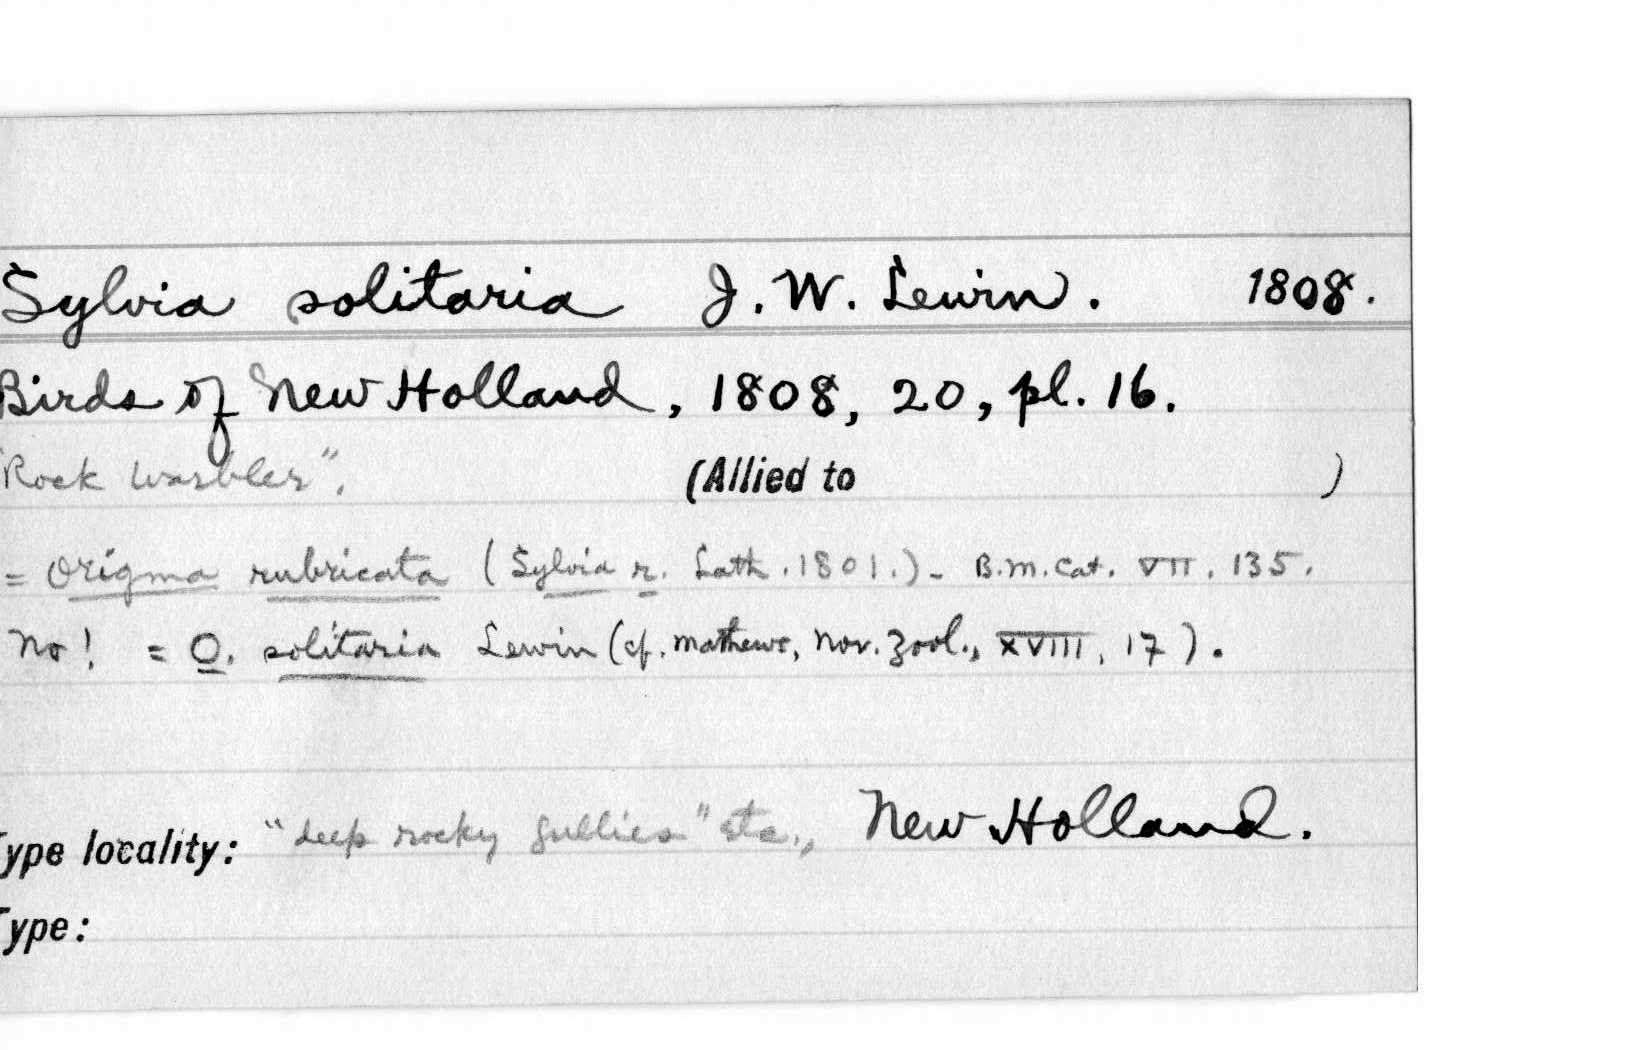 Sylvia solitaria J. W. Lewin. 1808.
Birds of New Holland, 1808, 20, pl. 16.
"Rock Warbler". (Allied to )
= Origma rubricata (Sylvia r. Lath. 1801.) - B.M. Cat. VII. 135.
No! = O. solitaria Lewin (cf. Mathews, Nov. Zool., XVIII, 17).
Type locality: "deep rocky gullies" etc., New Holland.
Type: